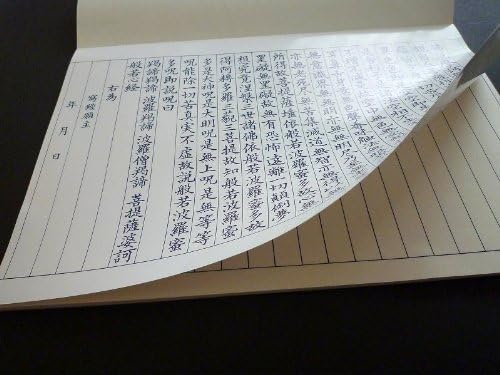 無意識界無無明亦無
亦無老死尽無苦集滅道無智亦無得以無
所得故菩提薩埵依般若波羅蜜多故心無
罣礙無罣礙故無有恐怖遠離一切顛倒夢
想究竟涅槃三世諸佛依般若波羅蜜多故
得阿耨多羅三藐三菩提故知般若波羅蜜
多是大神呪是大明呪是無上呪是無等等
呪能除一切苦真実不虛故說般若波羅蜜
多呪即說呪曰
羯諦羯諦 波羅羯諦 波羅僧羯諦 菩提薩婆訶
般若心経
右為
寫経願主
年 月 日